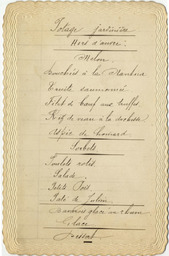 Potage Jardinière
Hors d'œuvre
Melon
Bouchées à la
Truite saumonée
Filet de bœuf aux truffes
Ris de veau à la
Aspic de homard
Sorbets
Poulets rotis
Salade
Petits Pois
glacé
Glace
Dessert